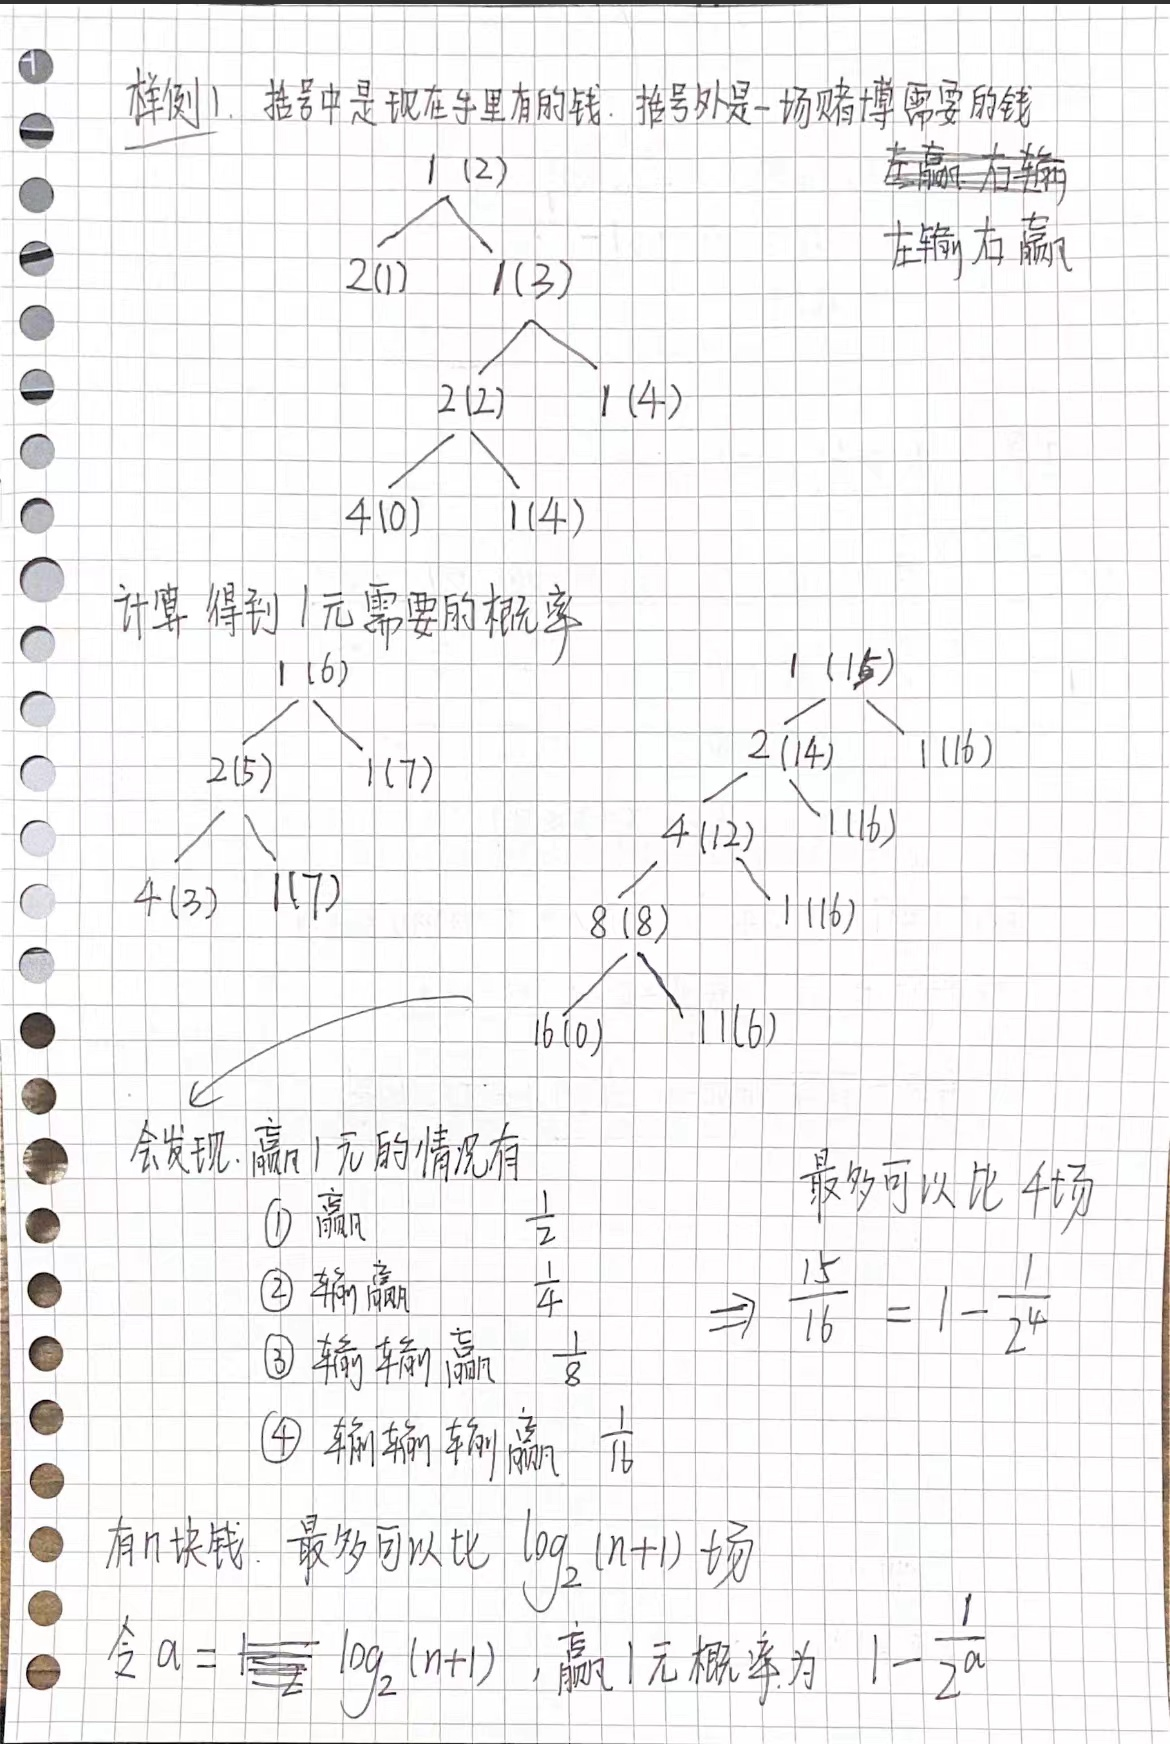 样例1. 括号中是现在手里有的钱. 括号外是一场赌博需要的钱
左赢 右输
左输 右赢
1 (2)
2(1) 1(3)
2(2) 1(4)
4(0) 1(4)
计算 得到1元需要的概率
1(6)
2(5) 1(7)
4(3) 1(7)
1 (15)
2(14) 1(16)
4(12) 1(16)
8(8) 1(16)
16(0) 1(16)
会发现. 赢1元的情况有
① 赢 1/2
② 输赢 1/4
③ 输输赢 1/8
④ 输输输赢 1/16
最多可以比4场
⇒ 15/16 = 1 - 1/2^4
有n块钱. 最多可以比 log₂(n+1) 场
令 a = log₂(n+1) , 赢1元概率为 1 - 1/2^a